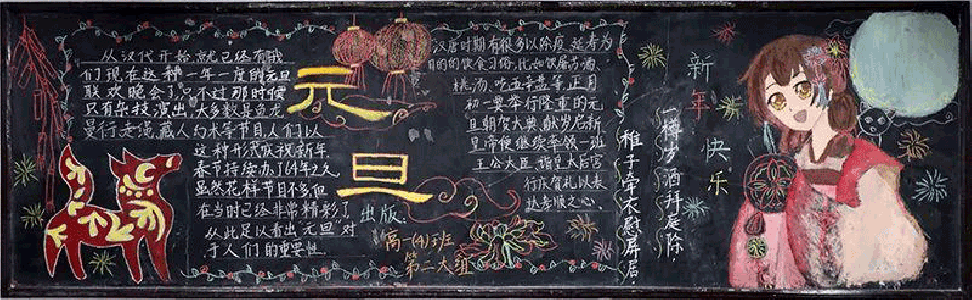 从汉代开始,就已经有我
们现在这种一年一度的元旦
联欢晚会了,只不过那时候
只有杂技演出,大多数是鱼龙
曼衍、走绳、藏人幻术等节目,人们以
这种形式庆祝新年
春节持续办了69年之久
虽然花样节目不多,但
在当时已经非常精彩了
从此足以看出元旦对
于人们的重要性
元
旦
出版:
高一(4)班
第二大组
汉唐时期有很多以除疫、延寿为
目的的饮食习俗,比如饮屠苏酒、
桃汤、吃五辛盘等,正月
初一要举行隆重的元
旦朝贺大典,献岁启新
皇帝便继续率领一班
王公大臣
行庆贺礼以表
达孝顺之心.
稚子牵衣慰屏居
一樽岁酒拜庭除
新年快乐